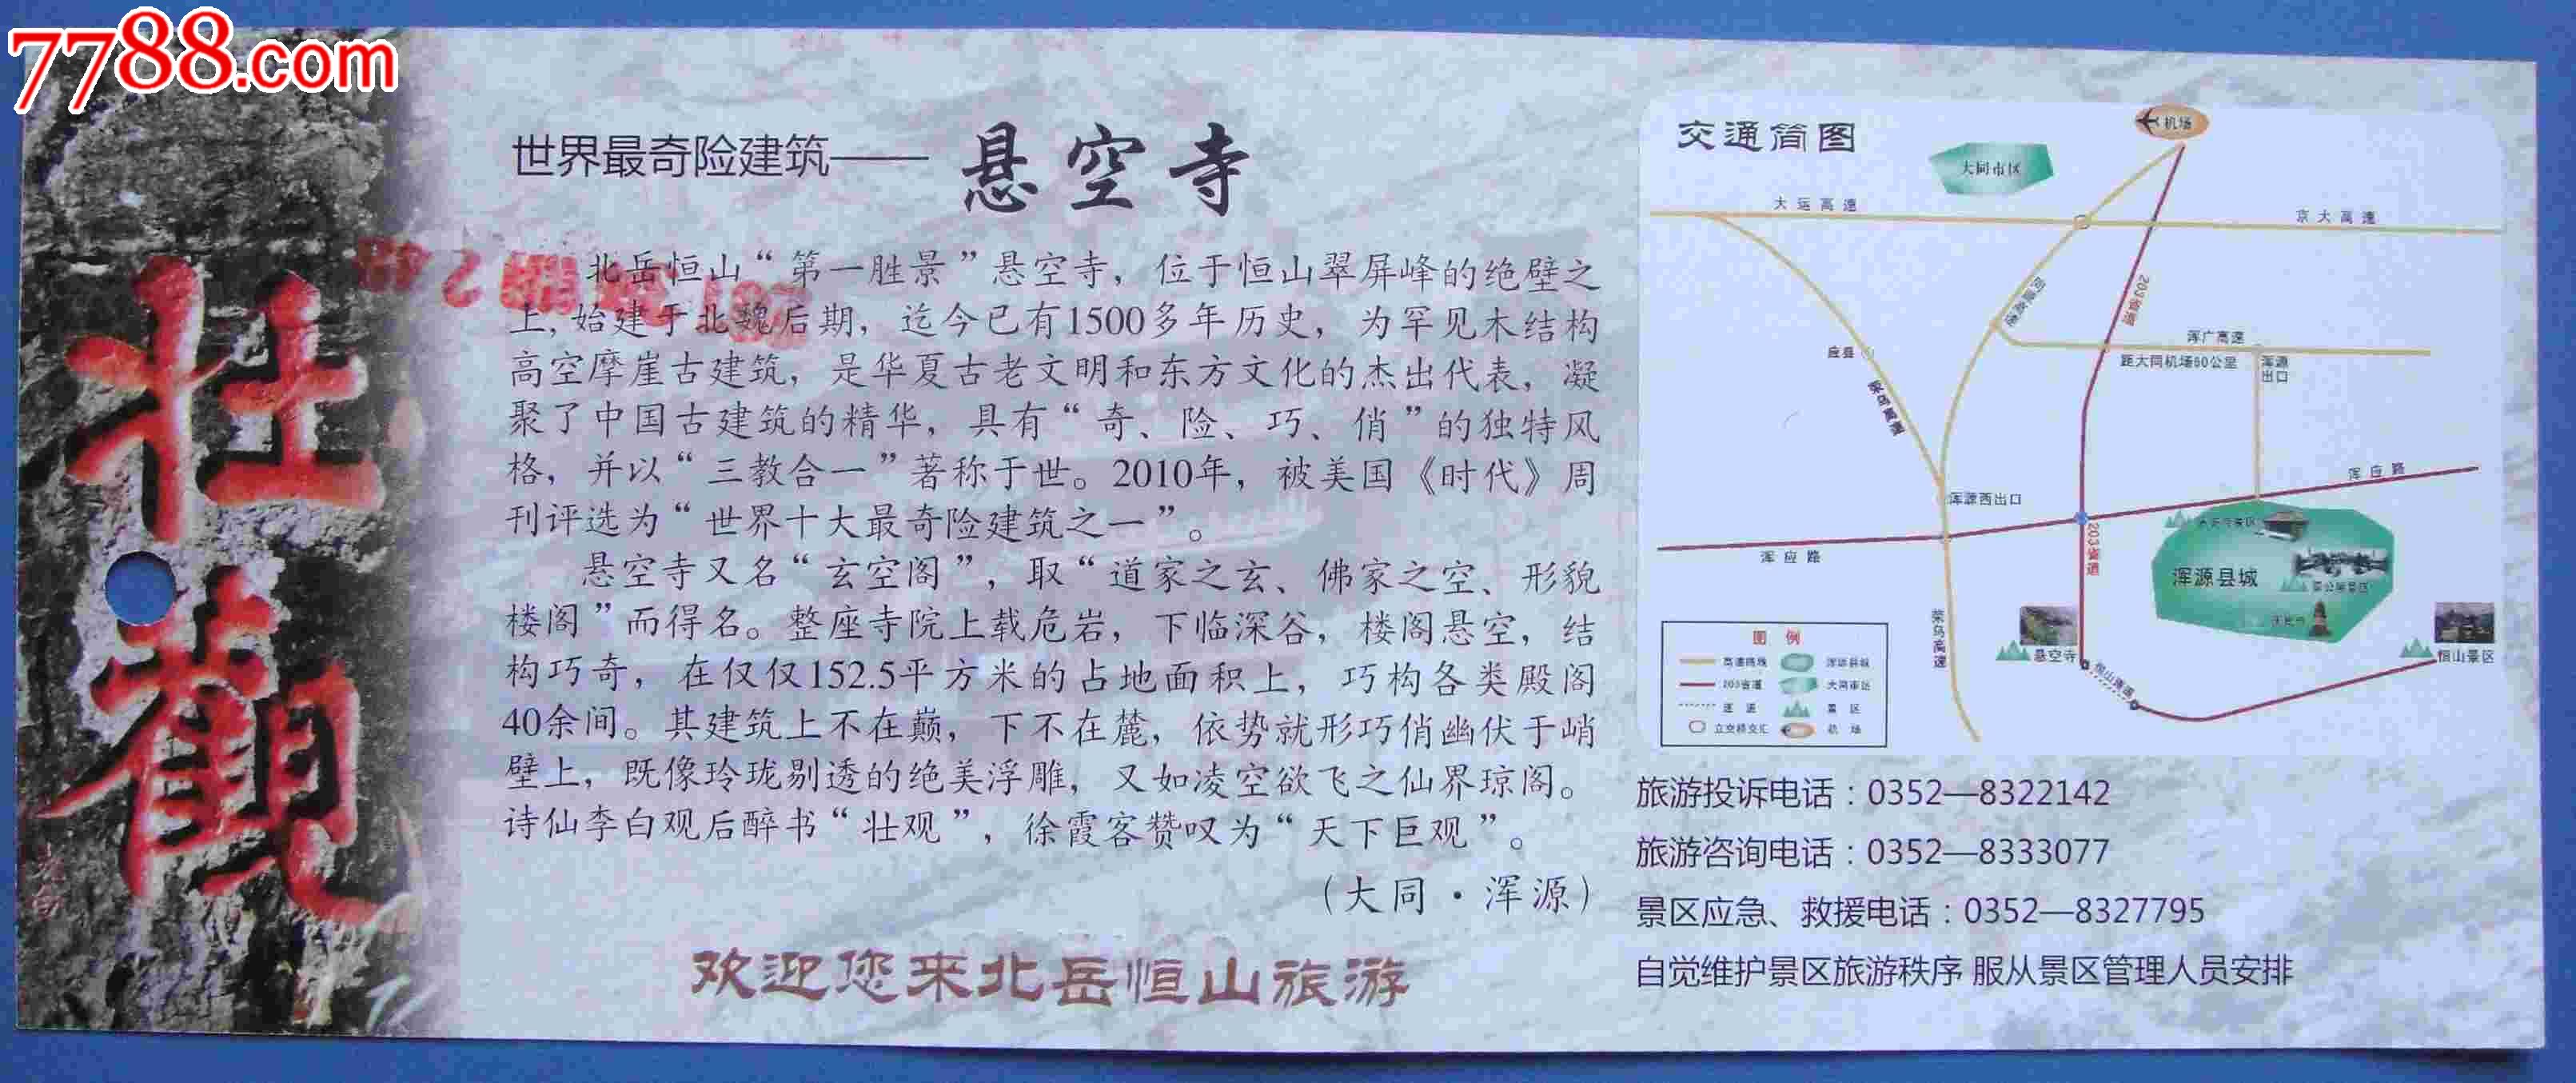 7788.com
壮
觀
世界最奇险建筑——悬空寺
北岳恒山“第一胜景”悬空寺，位于恒山翠屏峰的绝壁之
上,始建于北魏后期，迄今已有1500多年历史，为罕见木结构
高空摩崖古建筑，是华夏古老文明和东方文化的杰出代表，凝
聚了中国古建筑的精华，具有“奇、险、巧、俏”的独特风
格，并以“三教合一”著称于世。2010年，被美国《时代》周
刊评选为“世界十大最奇险建筑之一”。
悬空寺又名“玄空阁”，取“道家之玄、佛家之空、形貌
楼阁”而得名。整座寺院上载危岩，下临深谷，楼阁悬空，结
构巧奇，在仅仅152.5平方米的占地面积上，巧构各类殿阁
40余间。其建筑上不在巅，下不在麓，依势就形巧俏幽伏于峭
壁上，既像玲珑剔透的绝美浮雕，又如凌空欲飞之仙界琼阁。
诗仙李白观后醉书“壮观”，徐霞客赞叹为“天下巨观”。
（大同·浑源）
欢迎您来北岳恒山旅游
交通简图
机场
大同市区
大运高速
京大高速
203省道
浑广高速
应县
距大同机场60公里
浑源
出口
荣乌高速
浑源西出口
浑应路
浑应路
203省道
浑源县城
荣乌高速
悬空寺
恒山隧道
恒山景区
图例
高速路线
浑源县城
203省道
大同市区
隧道
景区
立交桥交汇
机场
旅游投诉电话：0352—8322142
旅游咨询电话：0352—8333077
景区应急、救援电话：0352—8327795
自觉维护景区旅游秩序 服从景区管理人员安排